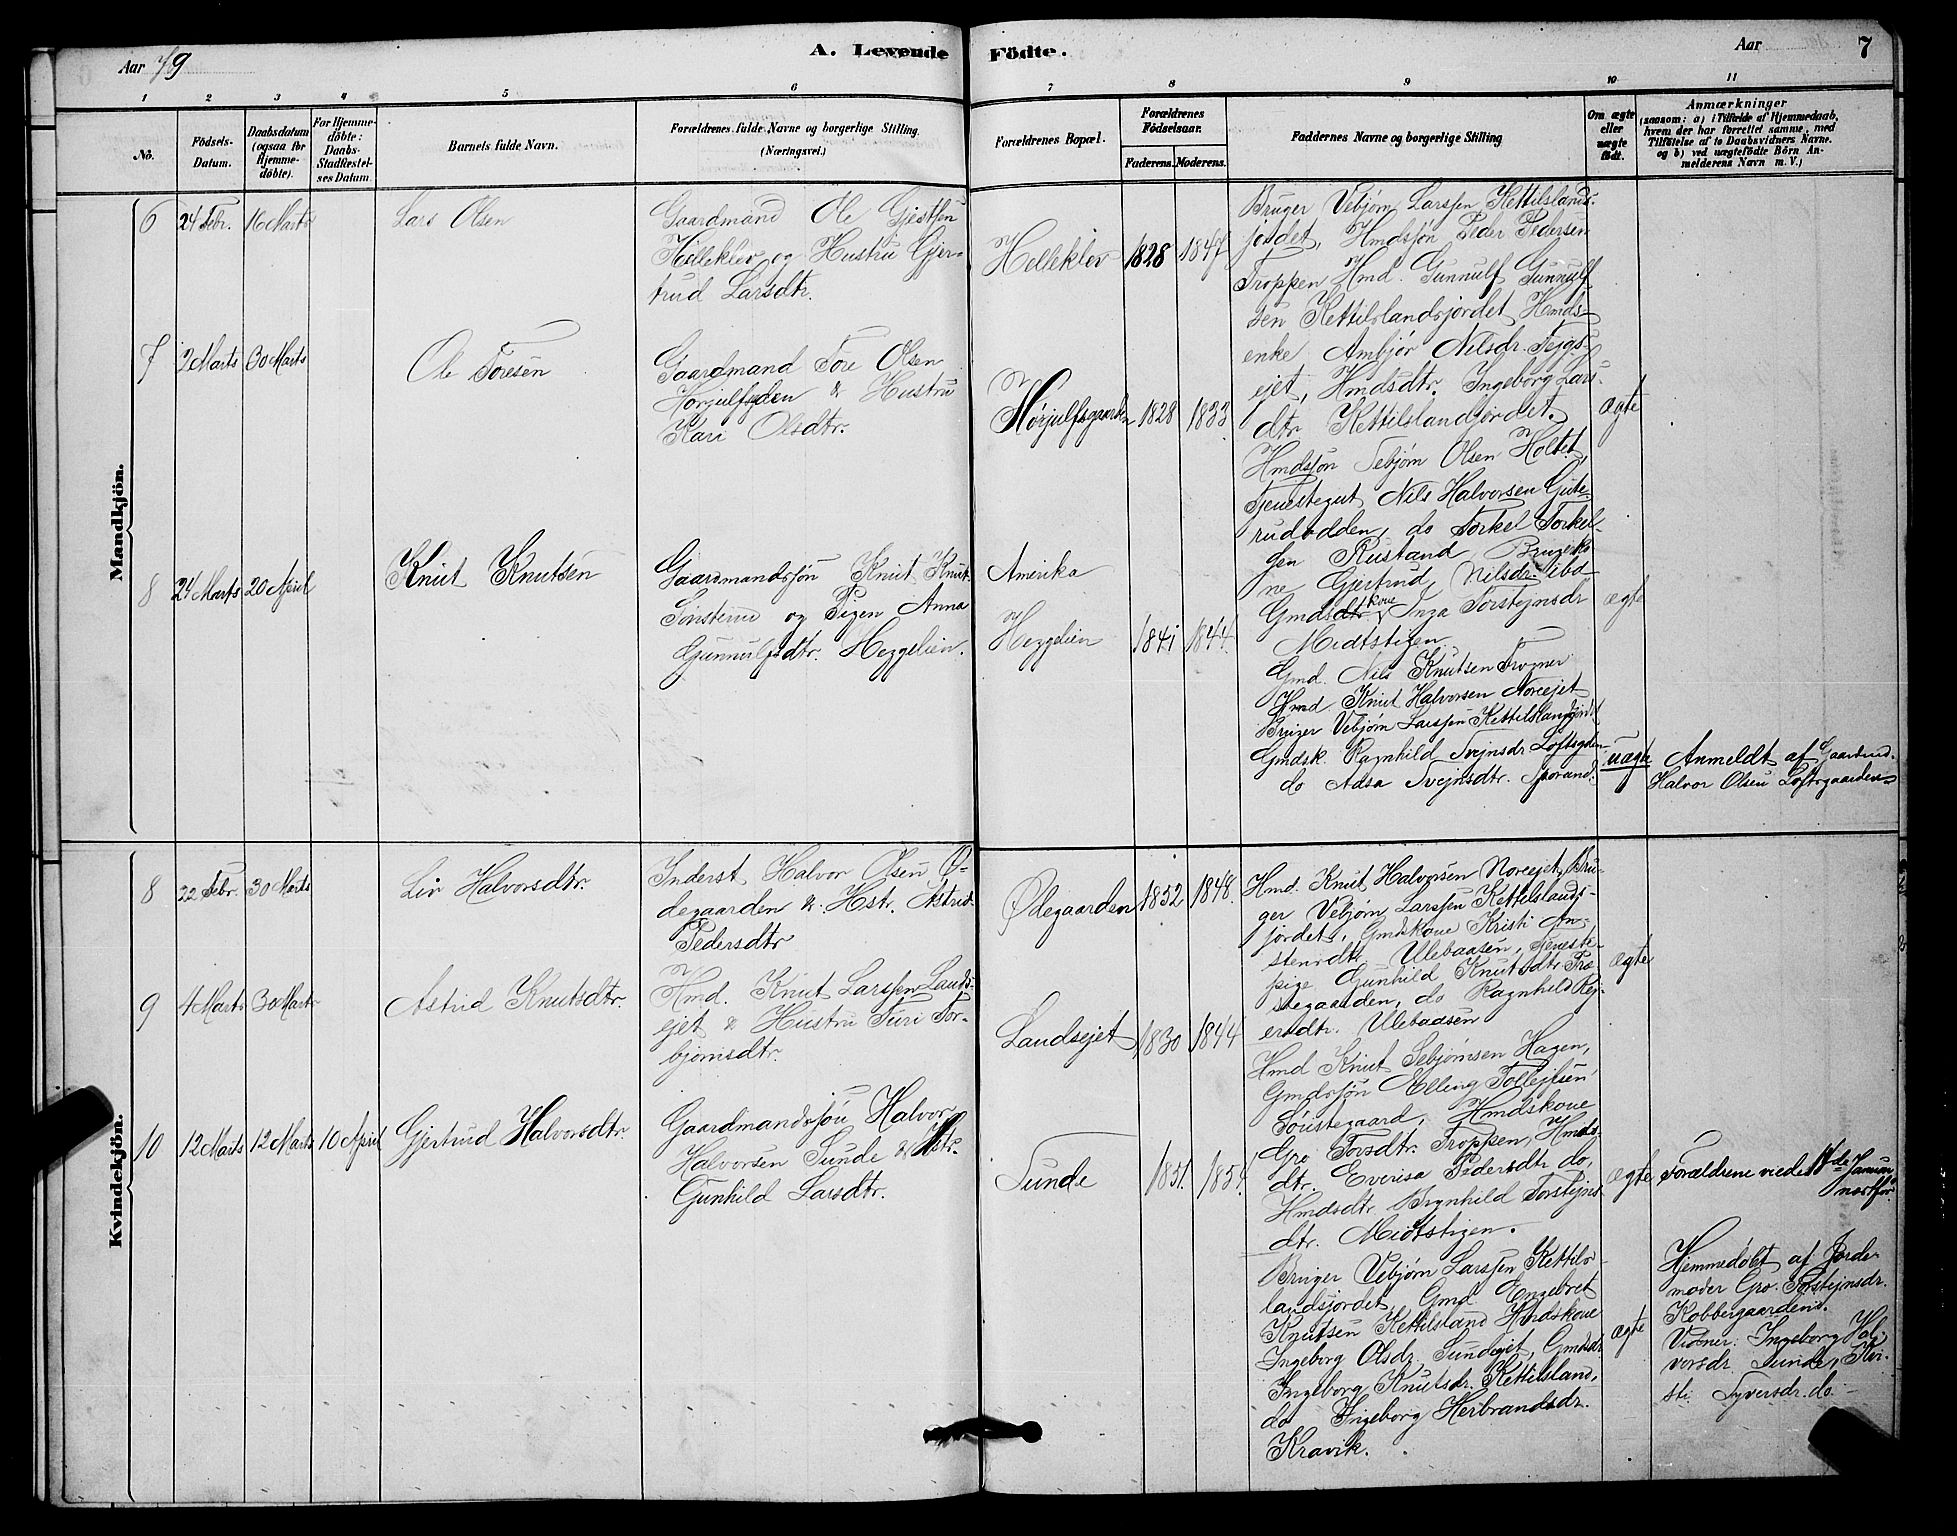 Aar 79
A. Levende Födte.
Aar
7
1 2 3 4 5 6 7 8 9 10 11
No.
Födsels-
Datum.
Daabsdatum
(ogsaa for
Hjemme-
döbte).
For Hjemme-
döbte:
Daabs-
Stadfestel-
ses Datum
Barnets fulde Navn.
Forældrenes fulde Navne og borgerlige Stilling.
(Næringsvei.)
Forældrenes Bopæl.
Forældrenes
Födselsaar.
Faderens. Moderens.
Faddernes Navne og borgerlige Stilling
Om ægte
eller
uægte
födt.
Anmærkninger
(saasom: a) i Tilfælde af Hjemmedaab,
hvem der har forrettet samme, med
Tilföielse af to Daabsvidners Navne.
og b) ved uægtefödte Börn An-
melderens Navn m. V.)
Mandkjön.
6 24 Febr. 16 Marts
Lars Olsen
Gaardmand Ole Gjestsen
Helleklev og Hustru Gjer-
trud Larsdtr.
Helleklev 1828 1847
Bruger Vebjørn Larssen Kettilslands-
jordet, Hmdsjøn Peder Pedersen
Troppen Hmd. Gunnulf Gunnulf
sen Kettilslandsjordet Hmds-
enke Ambjør Nilsdr. Tejgs-
ejet, Hmdsdtr. Ingeborg Lars-
dtr Kettilslandjordet.
ægte
7 2 Marts 30 Marts
Ole Toresen
Gaardmand Tore Olsen
Horjulfsgden & Hustru
Kari Olsdtr.
Hørjulfsgaarden 1828 1833
Hmdsjøn Tebjørn Olsen Holtet,
Tjenestegut Nils Halvorsen Gute-
rudodden, do Torkel Torkel-
sen Rustand, Brugerko
ne Gjertrud Nilsdr. ibd
Gmdsdtr kone Inga Torstejnsdr
Midtstigen.
ægte
8 24 Marts 20 April
Knut Knutsen
Gaardmandssøn Knut Knut.
Sønsterud og Pigen Anna
Gunnulfsdtr. Heggelien.
Amerika
Heggelien 1841 1844.
Gmd. Nils Knutsen Trogner
Hmd Knut Halvorsen Noreejet
Bruger Vebjørn Larssen Kettilslandsjordet
Gmdsk. Ragnhild Svejnsdr Loftsgden
do Adsa Svejnsdtr. Sporand.
uægte
Anmeldt af Gaardmd.
Halvor Olsen Loftsgaarden
Kvindekjön.
8 22 Febr. 30 Marts
Liv Halvorsdtr.
Inderst Halvor Olsen Ø-
degaarden & Hstr. Astrid
Pedersdtr
Ødegaarden 1852 1848.
Hmd. Knut Halvorsen Noreejet, Bru-
ger Vebjørn Larssen Kettilslands-
jordet, Gmdskone Kristi An-
stensdtr Ulebaasen, Tjeneste-
pige Gunhild Knutsdtr Præ-
stegaarden, do Ragnhild Rej-
ersdtr. Ulebaasen
ægte
9 4 Marts 30 Marts
Astrid Knutsdtr.
Hmd. Knut Larssen Lands-
ejet & Hustru Turi Tor-
bjørnsdtr.
Landsejet 1830 1844
Hmd Knut Sebjørnsen Hagen,
Gmdssøn Elling Tollejfsen
Søustegaard, Hmdskone
Gro Torsdtr. Troppen, Hmds-
dtr. Everisa Pedersdtr do,
Hmdsdtr. Brynhild Torstejns
dtr. Midtstigen.
ægte
10 12 Marts 12 Marts 10 April
Gjertrud Halvorsdtr.
Gaardmandssøn Halvor
Halvorsen Sunde & Hstr.
Gunhild Larsdtr.
Sunde 1851. 1854.
Forældrene viedes 17de Januar
næstfør.
Bruger Vebjørn Larssen Kettils-
landsjordet, Gmd. Engebret
Knutsen Kettilsland Hmdskone
Ingeborg Olsdr. Sundeejet, Gmdsdr.
Ingeborg Knutsdr. Kettilsland,
do Ingeborg Herbrandsdr.
Kravik.
ægte
Hjemmedøbt af Jorde-
moder Gro Torstejnsdr.
Kobbergaarden.
Vidner: Ingeborg Hal-
vorsdr. Sunde, Kri-
sti Syversdr. do.